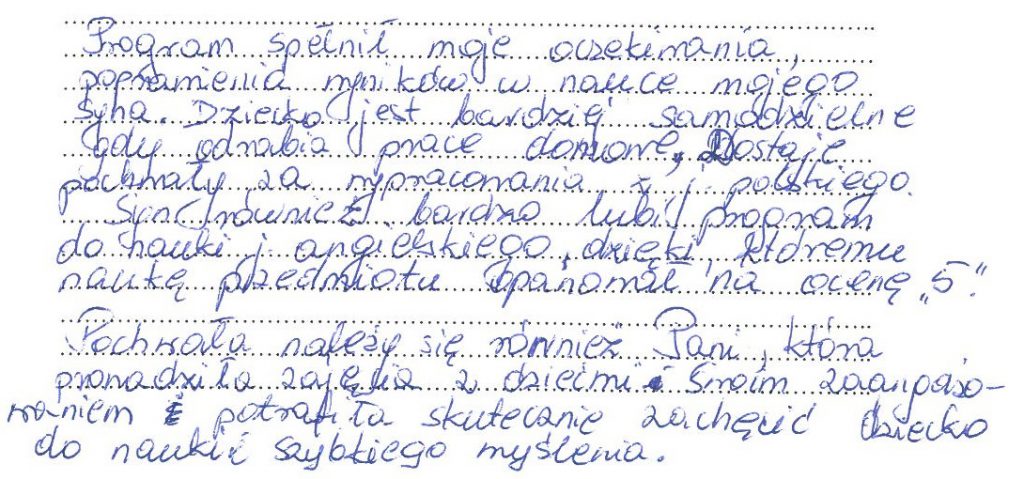 Program spełnił moje oczekiwania,
poprawienia wyników w nauce mojego
syna. Dziecko jest bardziej samodzielne
gdy odrabia prace domowe, Dostaje
pochwały za wypracowania z j. polskiego.
Synć również bardzo lubił program
do nauki j. angielskiego, dzięki któremu
naukę przedmiotu opanował na ocenę „5".
Pochwała należy się również Pani, która
prowadziła zajęcia z dziećmi. Swoim zaangażo-
waniem potrafiła skutecznie zachęcić dziecko
do nauki i szybkiego myślenia.